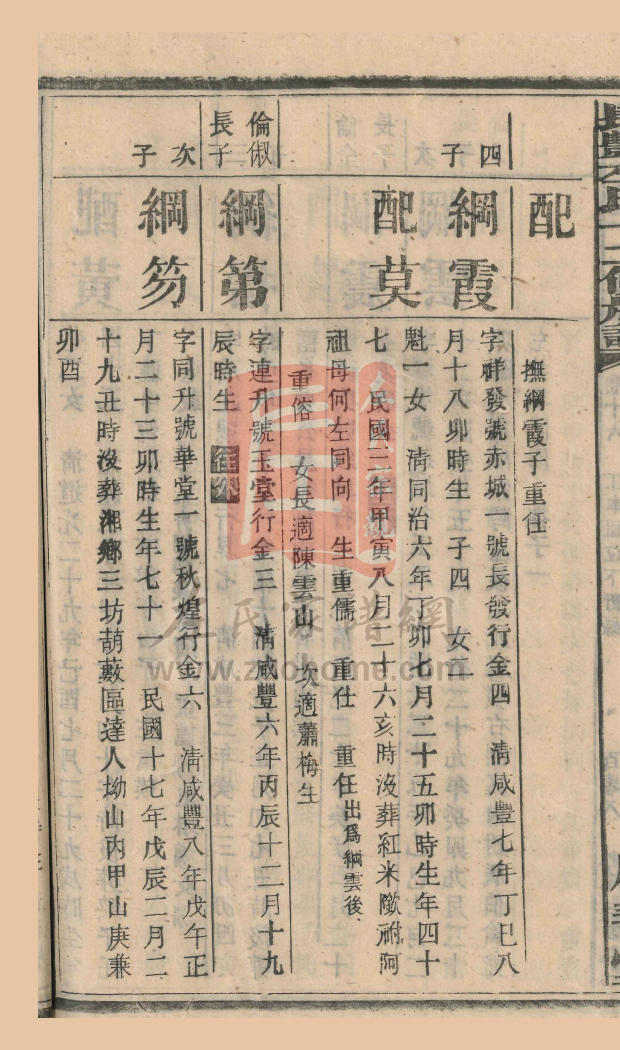 配
撫綱霞子重任
四子
綱霞
字祥發號赤城一號長發行金四　清咸豐七年丁巳八
月十八卯時生　子四　女二
配莫
魁一女　清同治六年丁卯七月二十五卯時生年四十
七　民國三年甲寅八月二十六亥時沒葬紅米
祖母何左同向　生重儒　重仕　重任出爲綱雲後
重俗　女長適陳雲山　次適蕭梅生
倫俶長子
綱第
字連升號玉堂行金三　清咸豐六年丙辰十二月十九
辰時生
次子
綱笏
字同升號華堂一號秋煌行金六　清咸豐八年戊午正
月二十三卯時生年七十一　民國十七年戊辰二月二
十九丑時沒葬湘鄉三坊葫蔽區達人坳山內甲山庚兼
卯酉
www.zhaohome.com